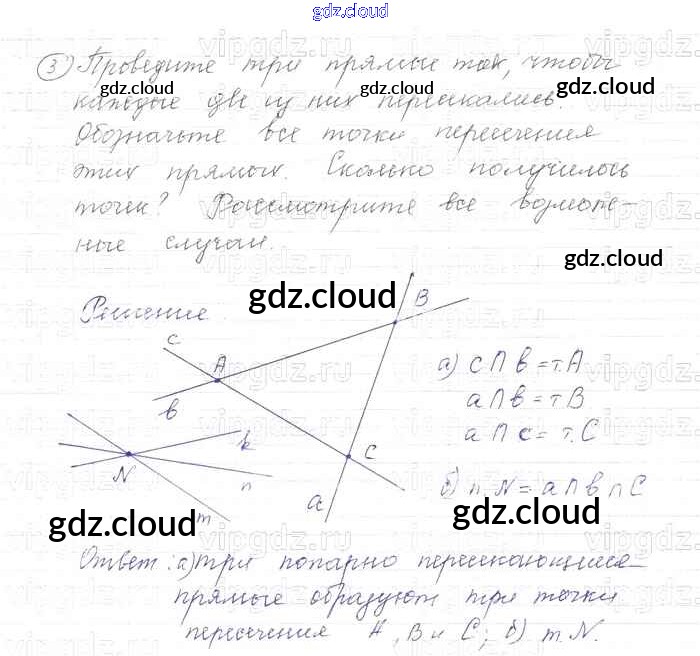 gdz.cloud
3) Проведите три прямые так, чтобы
gdz.cloud gdz.cloud
каждые две из них пересекались.
Обозначьте все точки пересечения
этих прямых. Сколько получилось
точек? Рассмотрите все возмож-
ные случаи.
gdz.cloud
Решение.
gdz.cloud
c A B
b
k
N n
m
C
a
а) c ∩ b = т. A
a ∩ b = т B
a ∩ c = т. C
б) т. N = a ∩ b ∩ C
gdz.cloud gdz.cloud
Ответ: а) три попарно пересекающиеся
прямые образуют три точки
пересечения A, B и C; б) т. N.